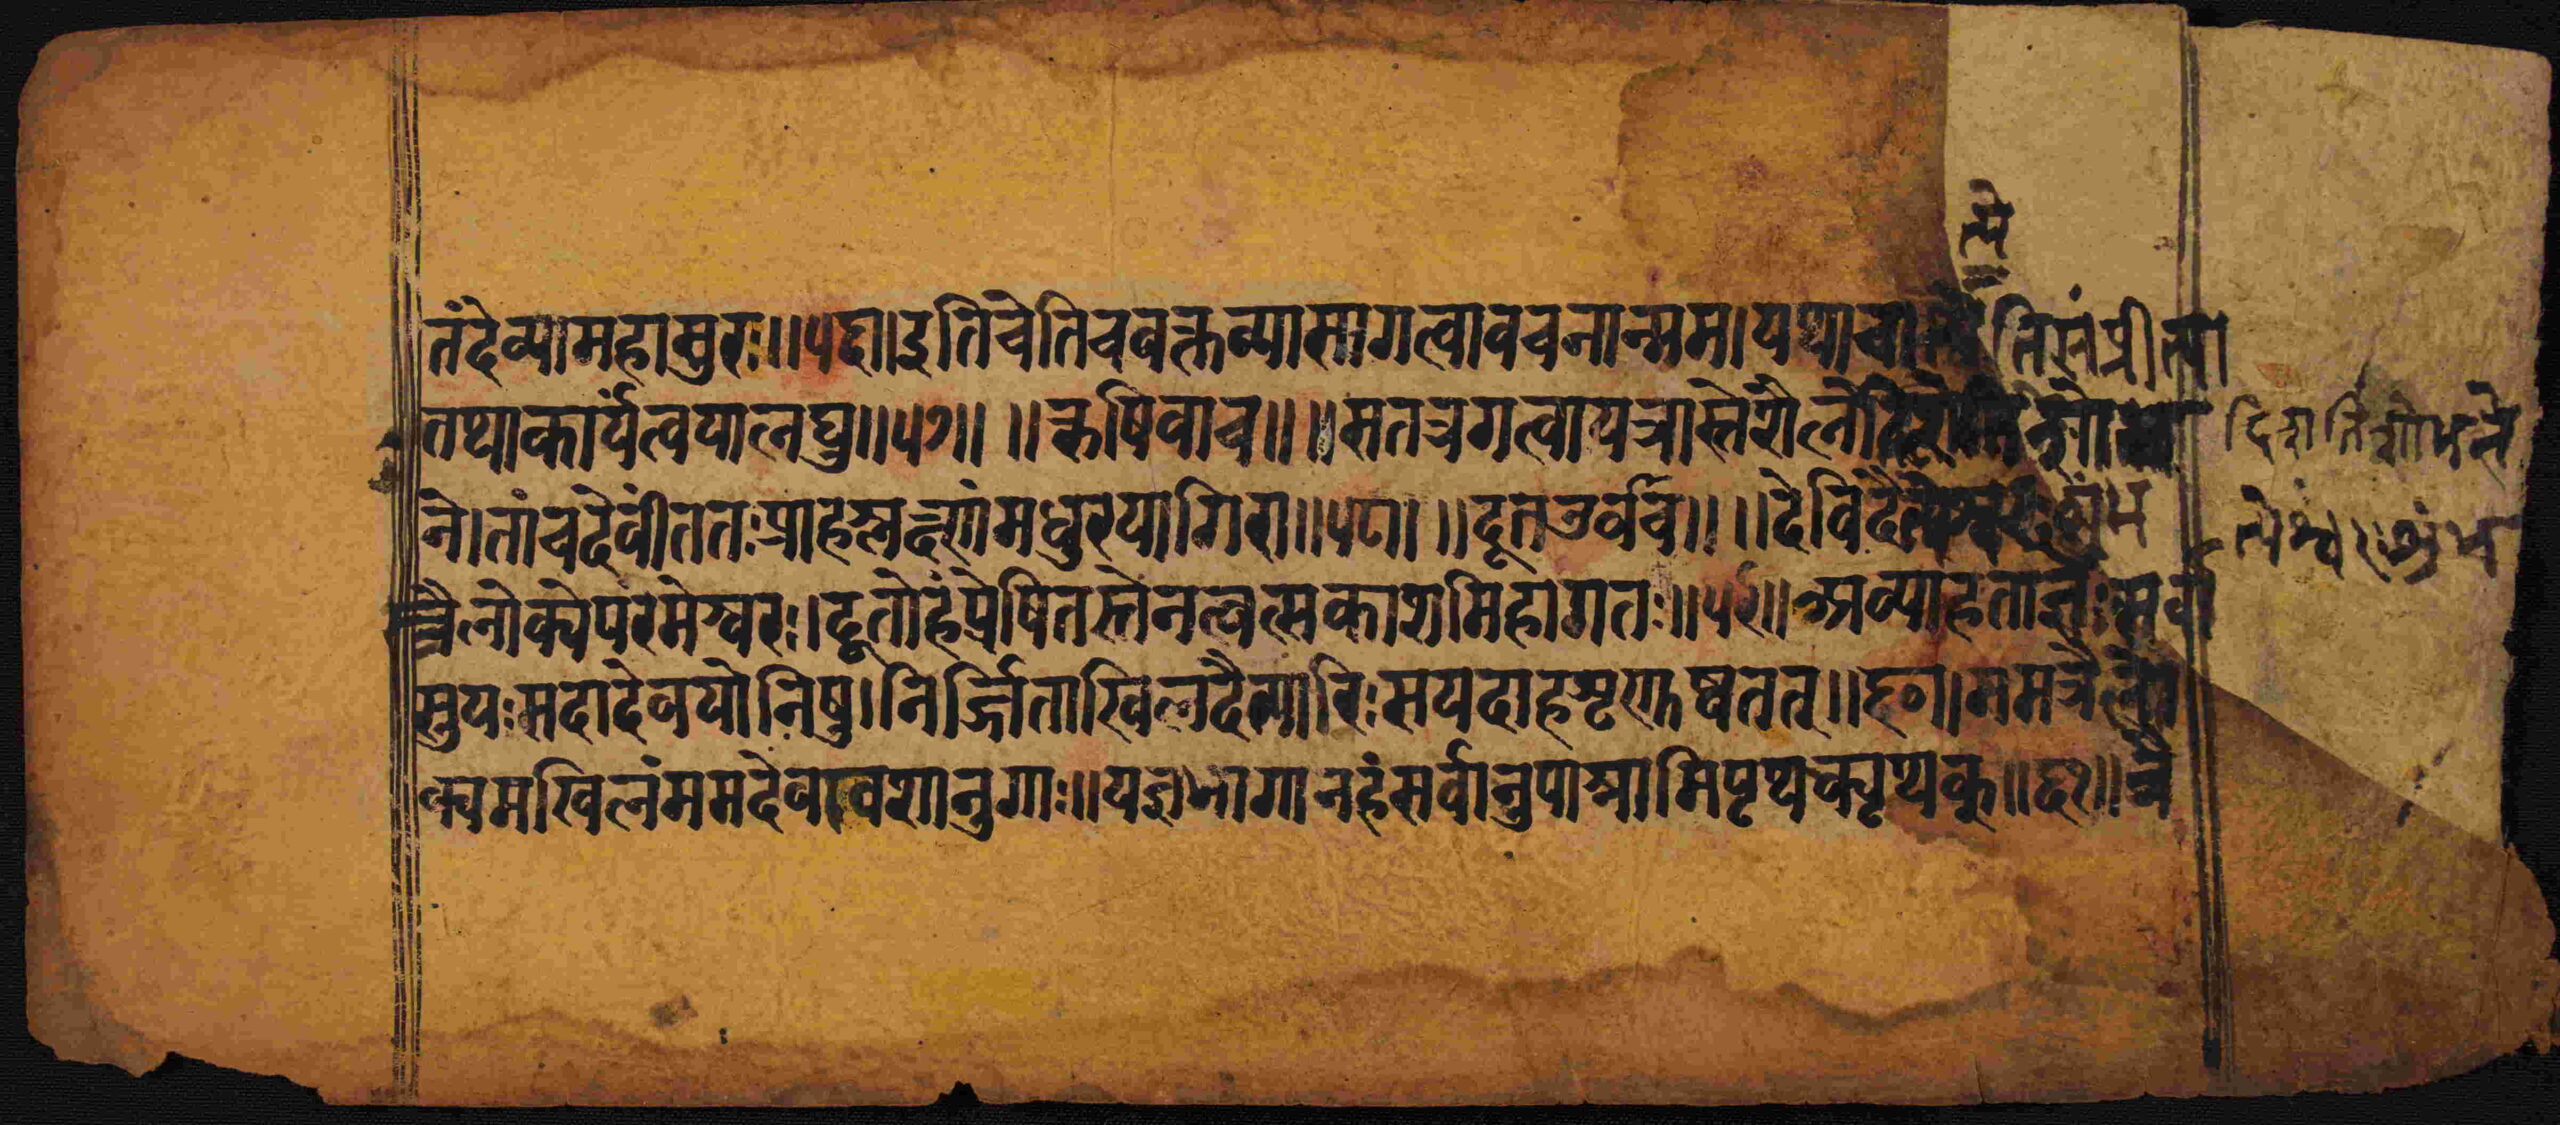 तंदेव्यामहासुरः॥५६॥इतिचेतिचवक्तव्यासागत्वावचनान्मम।यथाचाभ्येतिसंप्रीत्या
तथाकार्यंत्वयालघु॥५७॥ ॥ऋषिवाच॥ ॥सतत्रगत्वायत्रास्तेशैलोद्देशेतिशोभ
ने।तांचदेवींततःप्राहश्लक्ष्णंमधुरयागिरा॥५८॥ ॥दूतउवाच॥ ॥देविदैत्येश्वरःशुंभ
स्त्रैलोक्येपरमेश्वरः।दूतोहंप्रेषितस्तेनत्वत्सकाशमिहागतः॥५९॥अव्याहताज्ञःसर्वा
सुयःसदादेवयोनिषु।निर्ज्जिताखिलदैत्यारिःसयदाहशृणुष्वतत्॥६०॥ममत्रैलो
क्यमखिलंममदेवावशानुगाः॥यज्ञभागानहंसर्वानुपाश्नामिपृथक्पृथक्॥६१॥त्रै